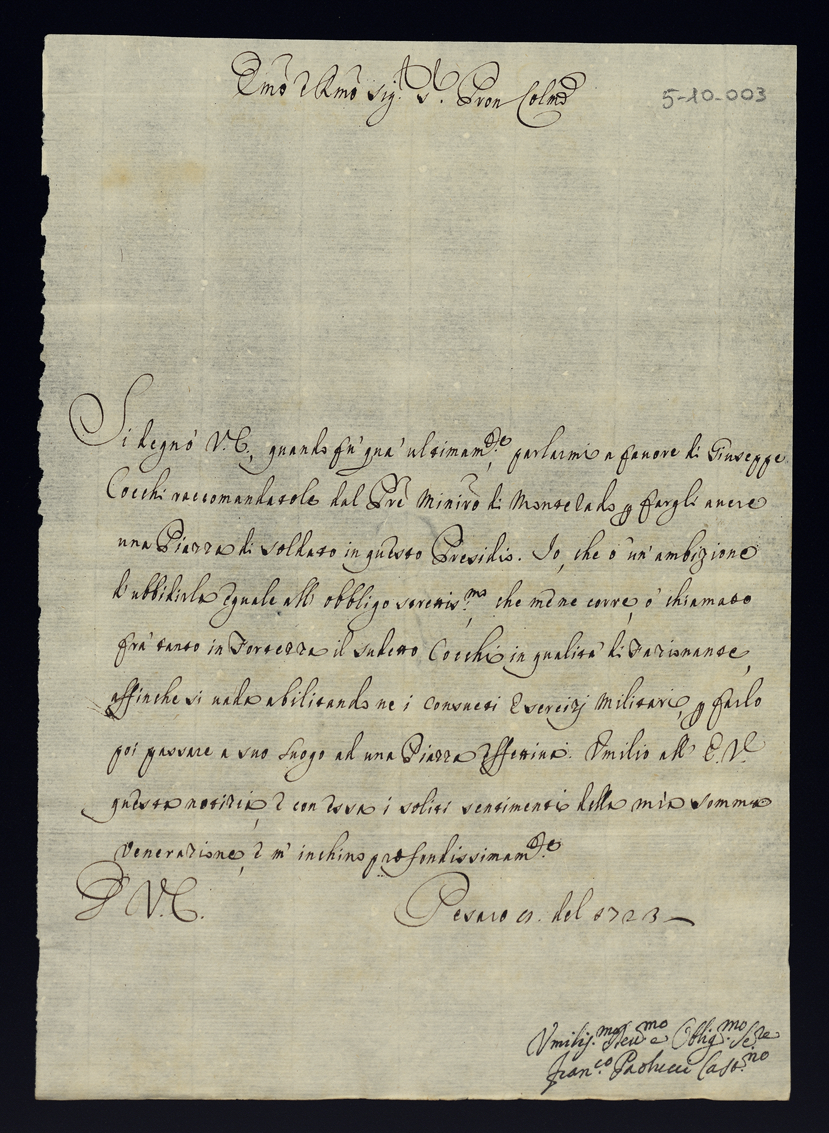 Emõ e Rmõ Sig.r S.r Pron Colmõ
5-10-003
Si degnò V.E., quando fù quà ultimam.te, parlarmi a favore di Giuseppe
Cocchi raccomandatole dal Prẽ Minirõ di Montelado p fargli avere
una Piazza di soldato in questo Presidio. Io, che ò un'ambizione
d'ubbidirla eguale all'obbligo strettis.mo che mẽne corre, ò chiamato
frà tanto in Fortezza il sudetto Cocchi in qualità di Tazionante,
affinche si vada abilitando ne i consueti Esercizj Militari, p farlo
poi passare a suo luogo ad una Piazza effettiva. Umilio all'E.V.
questa notizia, e con essa i soliti sentimenti della mia somma
venerazione, e m'inchino profondissimam.te
D V.E.
Pesaro del 1723
Vmilis.mo Dev.mo e Oblig.mo Se.re
Fran.co Paolucci Cast.no